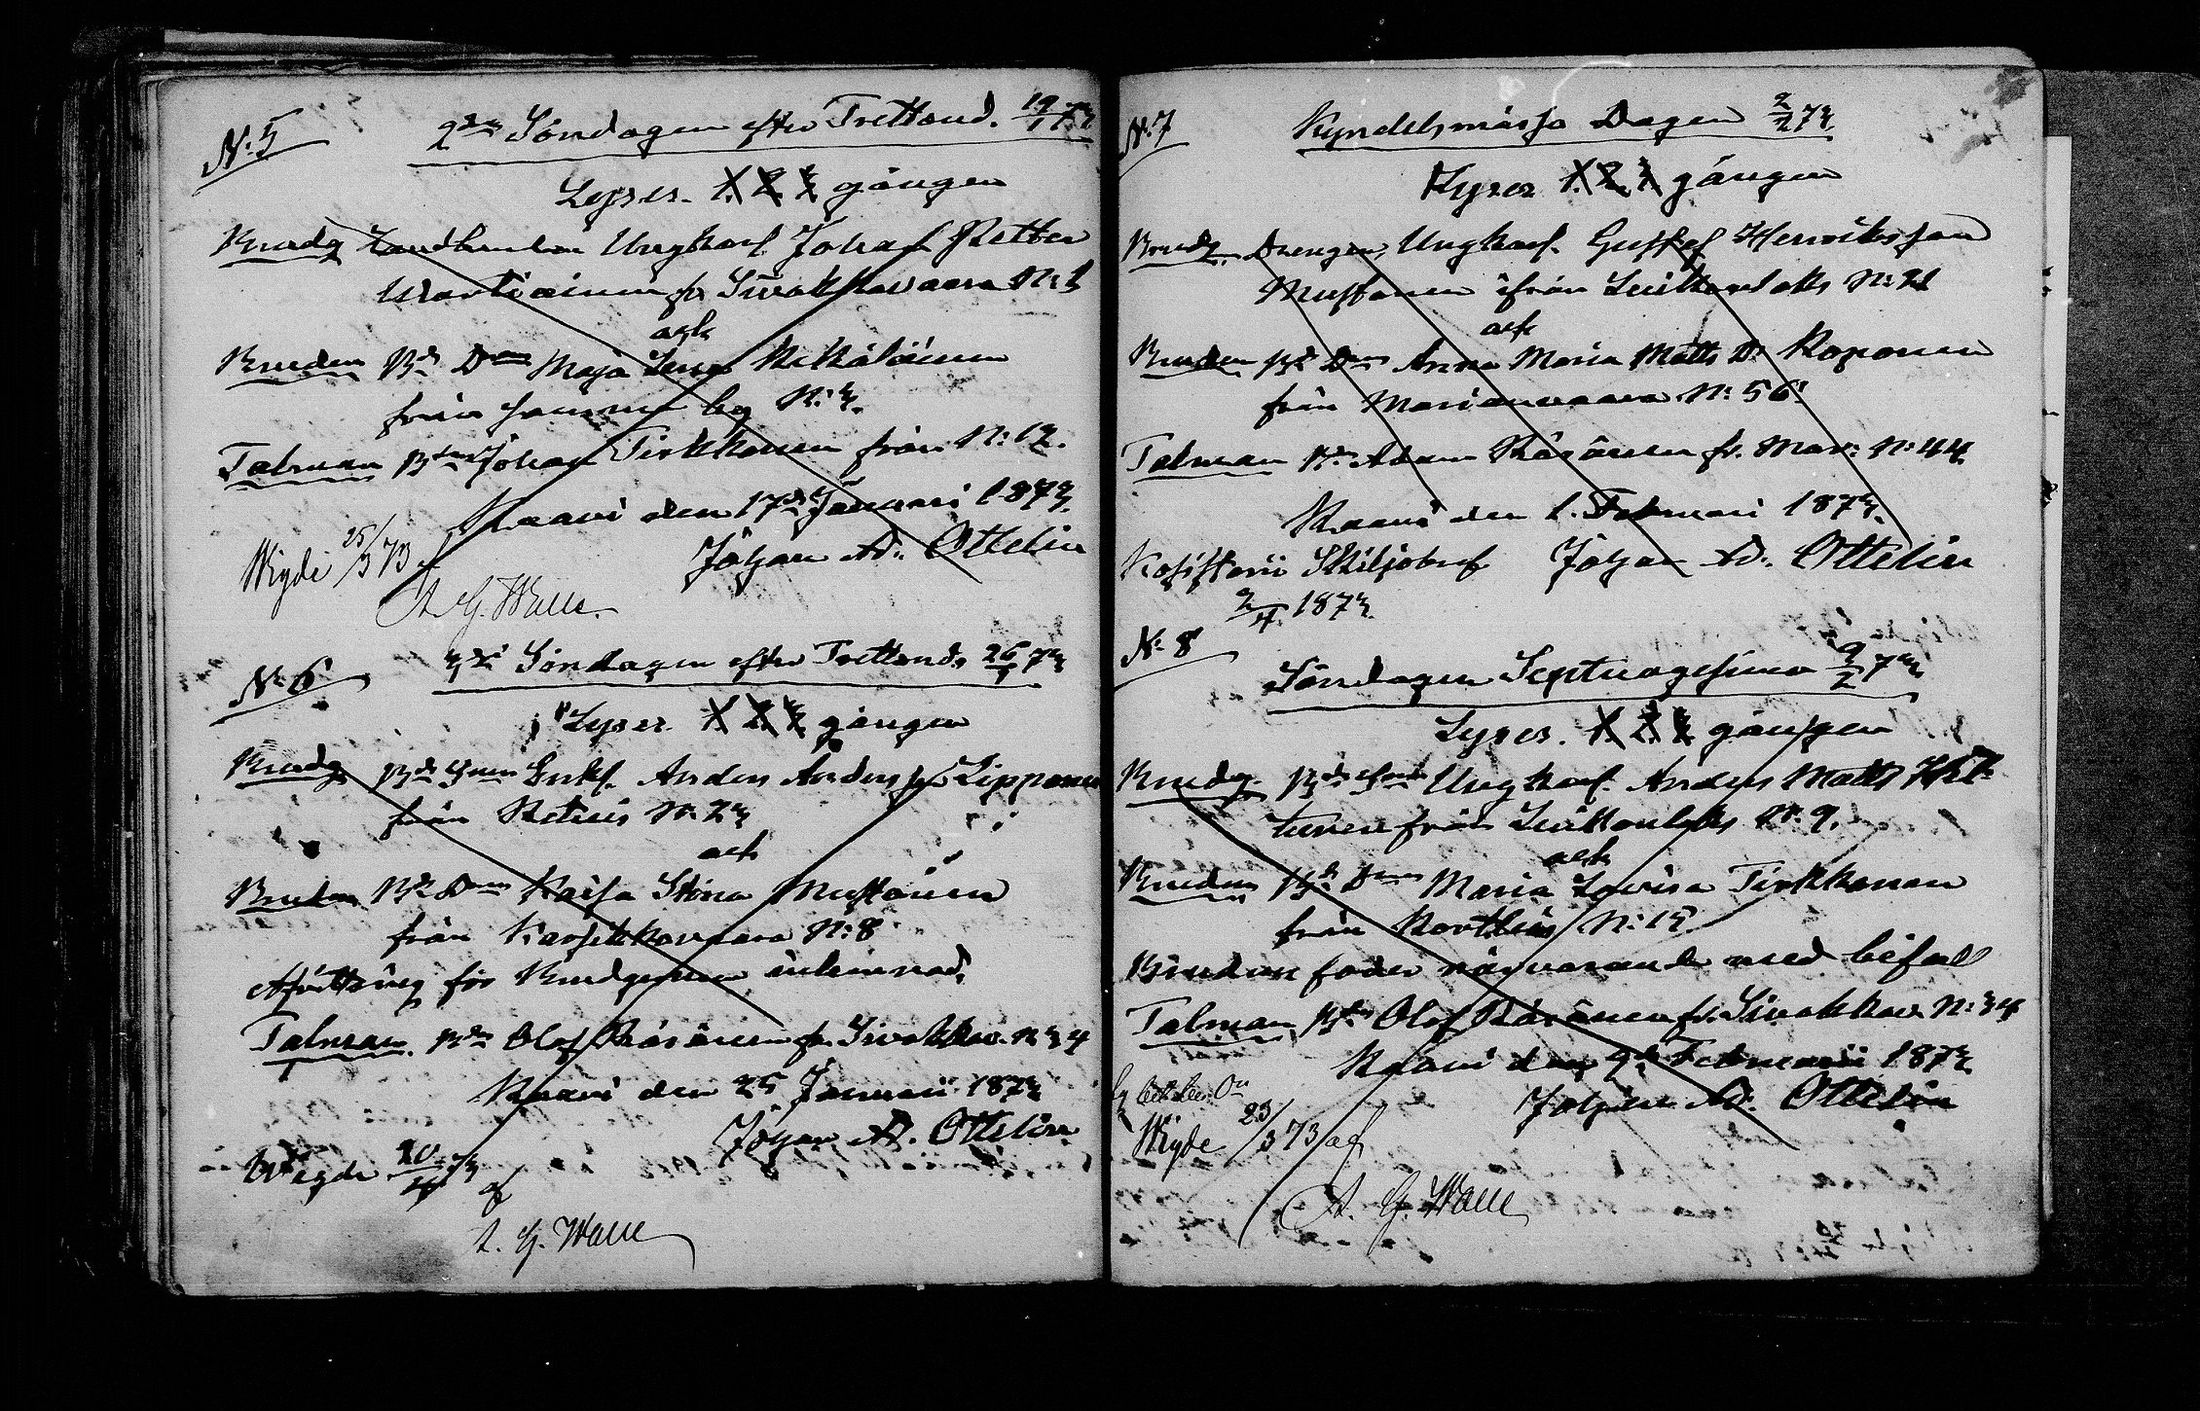 N:5 2dra Söndagen efter Trettond. 19/1 73
Lyses. 1. 2. 3 gången
Brudg Landbonden Ungkarl Johan Petter
Wartiainen fr Siwakkavaara N:1
och
Bruden Bd Dr Maja Lena
från samma by N:3.
Talman Bdn Johan Tirkkonen från N:12.
Kaavi den 17de Januari 1873.
Johan Ad. Ottelin
Wigde 25/3 73 af
A G. Walle.
N:6 3dje Söndagen efter Trettond. 26/1 73
Lyses. 1. 2. 3 gången
Brudg Bd Sonen Enkl. Anders Andersson Lipponen
från Retunis N:23
och
Bruden Bd Dr Kaisa Stina Mustonen
från Karsikkovaara N:8
Afvittring för Brudgummen inlemnad.
Talman. Bdn Olof Räsänen fr. Siwakkav. N:34
Kaavi den 25 Januari 1873
Johan Ad. Ottelin
Wigde 20/4 73 af
A. G. Walle
N:7 Kyndelsmässo Dagen 2/2 73
Lyses 1. 2. 3 gången
Brudg. Drengen, Ungkarl. Gustaf Henriksson
Mustonen ifrån Luikonlaks N:21
och
Bruden Bd Dr Anna Maria Matts Dr Koponen
från Marianvaara N:56.
Talman Bdn Adam Räsänen fr. Mar: N:44
Kaavi den 1. Februari 1873.
Johan Ad. Ottelin
Skiljobref
2/4 1873
N:8
Söndagen Septuagesima 9/2 73
Lyses. 1. 2. 3 gången
Brudg. Bd Sonen Ungkarl. Anders Matts
från Luikonlaks N:9.
och
Bruden Bd Dr Maria Lovisa Tirkkonen
från N:13
Brudens fader närvarande med bifall
Talman Bdn Olof Räsänen fr. Siwakkav. N:34
Kaavi den 9de Februari 1873
Johan Ad. Ottelin
Wigde 23/3 73 af
A. G. Walle